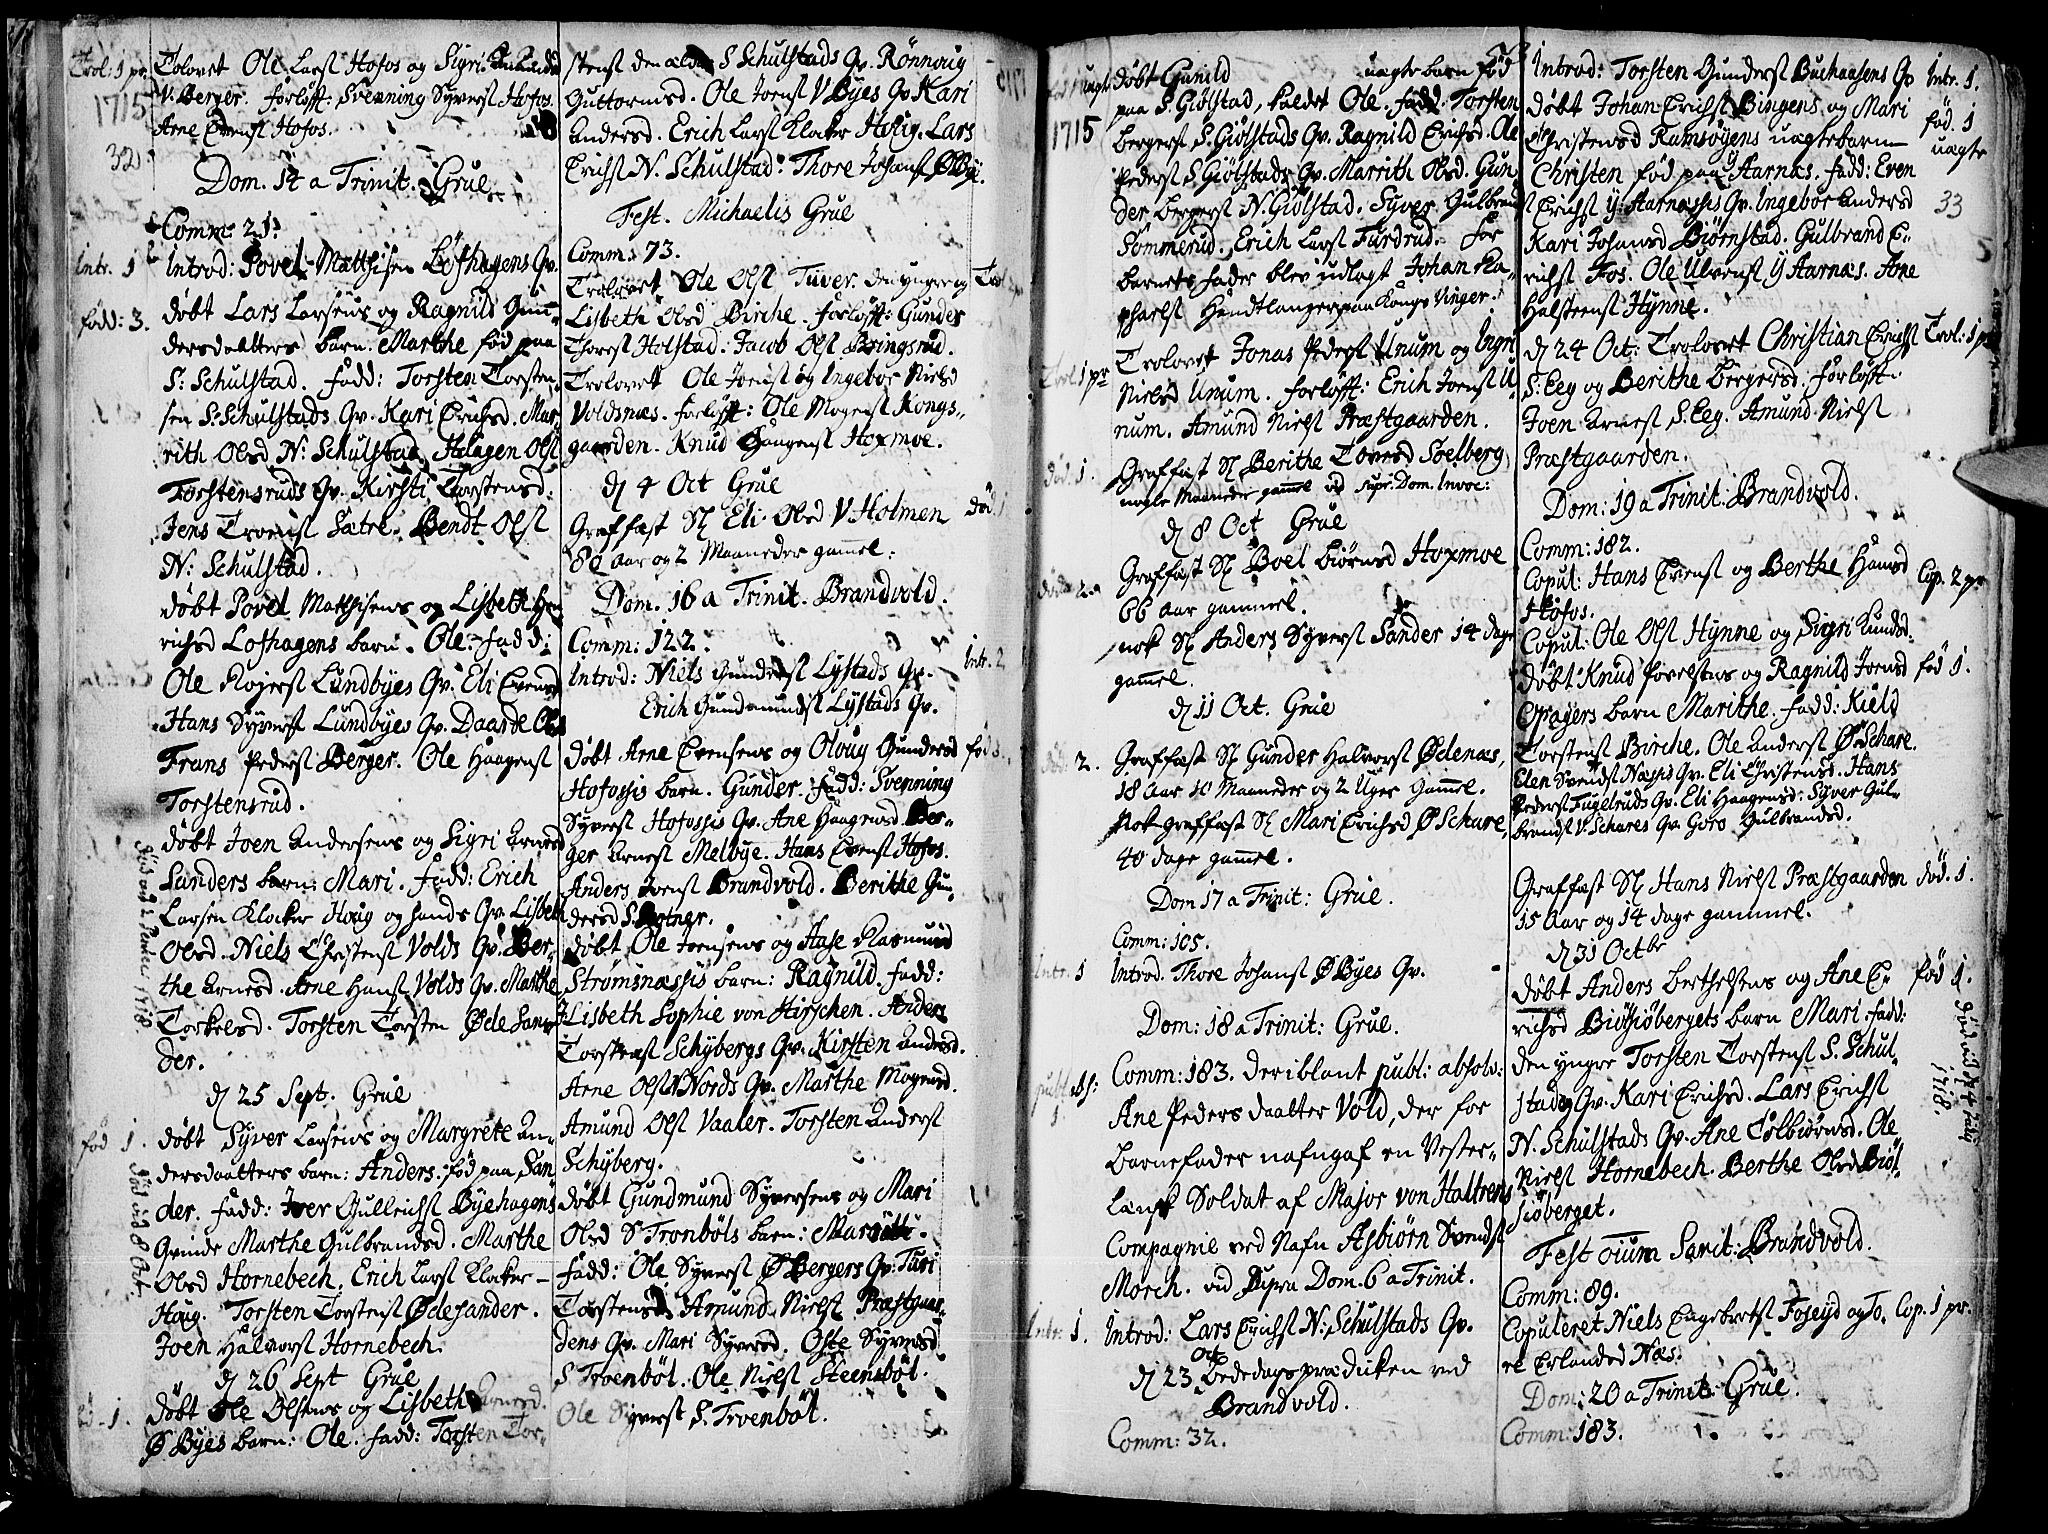 Trol: 1 pr
1715
32
Trolovet Ole Larsst Hofos og Sigri
V. Berger. forløfft: Svenning Syverst Hofos.
Arne Evenst Hofos.
Dom. 14 a Trinit. Grue
Comm: 21.
Intr. 1
Introd: Povel Matthisen Løfhagens Qv.
fødd: 3.
døbt Lars Larsens og Ragnild Gun-
dersdaatters barn. Marthe fød paa
S: Schulstad. fadd: Torsten Torsten-
sen S: Schulstads Qv. Kari Erichsd. Mar-
rith Olsd N: Schulstad. Halagen Olst
Torstensruds Qv. Kirsti Torstensd:
Jens Troenst Sætre. Bendt Olst
N: Schulstad.
døbt Povel Matthisens og Lisbeth Hen-
richsd Lofhagens barn. Ole. fadd:
Ole Rojerst Lundbyes Qv. Eli Evensd
Hans Syverst Lundbyes Qv. Daarde Olsd
Frans Pederst Berger. Ole Haagenst
Torstensrud.
døbt Joen Andersens og Sigri Arnesd
Sanders barn: Mari. fadd: Erich
Larsen Klocker Houg og hands Qv. Lisbeth
Olsd. Niels Christenst Volds Qv. Ber-
the Arnesd. Arne Hanst Volds Qv. Marthe
Torkelsd. Torsten Torsten Ødesan-
der.
d 25 Sept. Grue
fød 1.
døbt Syver Larsens og Margrete An-
dersdaatters barn: Anders. fød paa San-
der. fadd: Iver Gullichst Byehagens
Qvinde Marthe Gulbrandsd. Marthe
Olsd Hornebech. Erich Larst Klocker
Houg. Torsten Torstenst Ødesander.
Joen Halvorst Hornebech.
død ud 8 Oct.
d 26 Sept Grue
fød. 1.
døbt Ole Olsens og Lisbeth Arnesd.
Ø Byes barn: Ole. fadd: Torsten Tor-
stenst den ælder S Schulstads Qv. Rønnoug
Guttormsd. Ole Joenst V Byes Qv Kari
Andersd. Erich Larst Klocker Houg. Lars
Erichst N. Schulstad. Thore Johanst Ø Bye.
Fest. Michaelis Grue
Comm: 73.
Trolovet Ole Olst Tuver den yngre og
Lisbeth Olsd Birche. forløfft: Gunder
Thorest Holstad. Jacob Olst Bringsrud.
Trolovet Ole Joenst og Ingebor Nielsd
Voldsnæs. forløfft: Ole Mogenst Kongs-
gaarden. Knud Haagenst Hoxmoe.
d 4 Oct Grue
død. 1
Graffæst Sl Eli Olsd V Holmen
80 aar og 2 Maaneder gammel:
Dom. 16 a Trinit. Brandvold.
Comm: 122.
Intr. 2
Introd: Niels Gunderst Lystads Qv.
Erich Gundmundst Lystads Qv.
fød 3.
døbt Arne Evensens og Oloug Gundersd
Hofossis barn. Gunder. fadd: Svenning
Syverst Hofossis Qv. Ane Haagensd. Ber-
ger Arnest Melbye. Hans Evenst Hofos.
Anders Joenst Brandvold. Berithe Gun-
dersd S. Botner.
døbt Ole Joensens og Aase Rasmusd
Strømsnæssis barn: Ragnild. fadd:
Lisbeth Sophie von Hirschen. Anders
Torstenst Schybergs Qv. Kirsten Andersd.
Arne Olst Nords Qv. Marthe Mogensd.
Amund Olst Vaaler. Torsten Anderst
Schyberg.
døbt Gundmund Syversens og Mari
Olsd S Tronbøls barn: Maritte.
fadd: Ole Syverst Ø Bergers Qv. Turi
Torstensd. Amund Nielst Præstgaar-
dens Qv. Mari Syversd. Oste Syversd
S Troenbøl. Ole Nielst Steensbøl.
Ole Syverst S. Troenbøl.
1715
døbt Gunild uægte barn fød
paa S. Giølstad, kaldet Ole. fadd. Torsten
Bergerst S. Giølstads Qv. Ragnild Erichsd. Ole
Pederst S Giølstads Qv. Marrith Olsd. Gun-
der Bergerst N. Giølstad. Syver Gulbrandst
Sømmerud. Erich Larst Furdrud. for
barnets fader blev udlagt Johan Ra-
phaelst Handtlanger paa Kongs Vinger.
Trol 1 pr
Trolovet Jonas Pederst Unum og Ingri
Nielsd Unum. forløfft: Erich Joenst U-
num. Amund Nielst Præstgaarden.
død. 1.
Graffæst Sl Berithe Toresd Soelberg
nogle Maaneder gammel vid supr. Dom. Invoc:
d 8 Oct Grue
død 2.
Graffæst Sl Boel Biørnsd Hoxmoe
66 aar gammel.
nok Sl Anders Syverst Sander 14 dage
gammel.
d 11 Oct. Grue
død: 2.
Graffæst Sl Gunder Halvorst Ødenæs,
18 aar 10 Maaneder og 2 Uger gammel.
Nok graffæst Sl Mari Erichsd Ø Schare,
40 dage gammel.
Dom 17 a Trinit: Grue.
Comm: 105.
Intr. 1
Introd. Thore Johanst Ø Byes Qv.
Dom: 18 a Trinit: Grue.
publ: abs:
1
Comm: 183. deriblant publ: absolv:
Ane Peders daatter Vold, der for
Barnefader nafngaf en Vester-
lænsk Soldat af Major von Haltrens
Compagnie ved Nafn Asbiørn Svendst
Morch. vid supra Dom. 6 a Trinit.
Intr: 1.
Introd: Lars Erichst N: Schulstads Qv.
d 23 Oct Bededags prædicken ved
Brandvold.
Comm: 32.
Introd: Torsten Gunderst Buchaasens Qv
Intr. 1.
døbt Johan Erichst Bingens og Mari
Christensd Ramsøyens uægtebarn
fød. 1
uægte
33
Christen fød paa Aarnæs. fadd: Even
Erichst Y Aarnæssis Qv. Ingebor Andersd
Kari Johansd Biørnstad. Gulbrand E-
richst Fos. Ole Ulvenst Y Aarnæs. Ane
Halsteenst Hynne.
d 24 Oct: Trolovet Christian Erichst
Trol: 1 pr
S. Eeg og Berithe Bergersd. forløfft:
Joen Arnest S. Eeg. Amund Nielst
Præstgaarden.
Dom: 19 a Trinit: Brandvold.
Comm: 182.
Copul: Hans Evenst og Berthe Hansd
Cop. 2 pr
Hofos.
Copul: Ole Olst Hynne og Sigri Lundsd:
døbt Knud Povelsens og Ragnild Joensd
fød 1.
Opagers barn Marithe. fadd: Kield
Torstenst Birche. Ole Anderst Ø Schare.
Elen Svendst Næssis Qv. Eli Christensd. Hans
Pederst Fugelruds Qv. Eli Haagensd. Syver Gul-
brandst V. Schares Qv. Goro Gulbrandsd.
Graffæst Sl Hans Nielst Præstgaarden
død. 1.
15 Aar og 14 dage gammel.
d 31 Octbr
døbt Anders Berthelsens og Ane E-
fød 1.
richsd Biøsiøbergets barn Mari. fadd:
den yngre Torsten Torstenst S. Schul-
stads Qv. Kari Erichsd. Lars Erichst
N. Schulstads Qv. Ane Tolbiørnsd. Ole
Nielst Hornebech. Berthe Olsd Biøt-
siøberget.
1718.
Fest oium Sanct: Brandvold.
Comm: 89.
Copuleret Niels Engebretst Foseyd og To-
Cop. 1 pr.
re Erlandsd Næs.
Dom: 20 a Trinit: Grue.
Comm: 183.